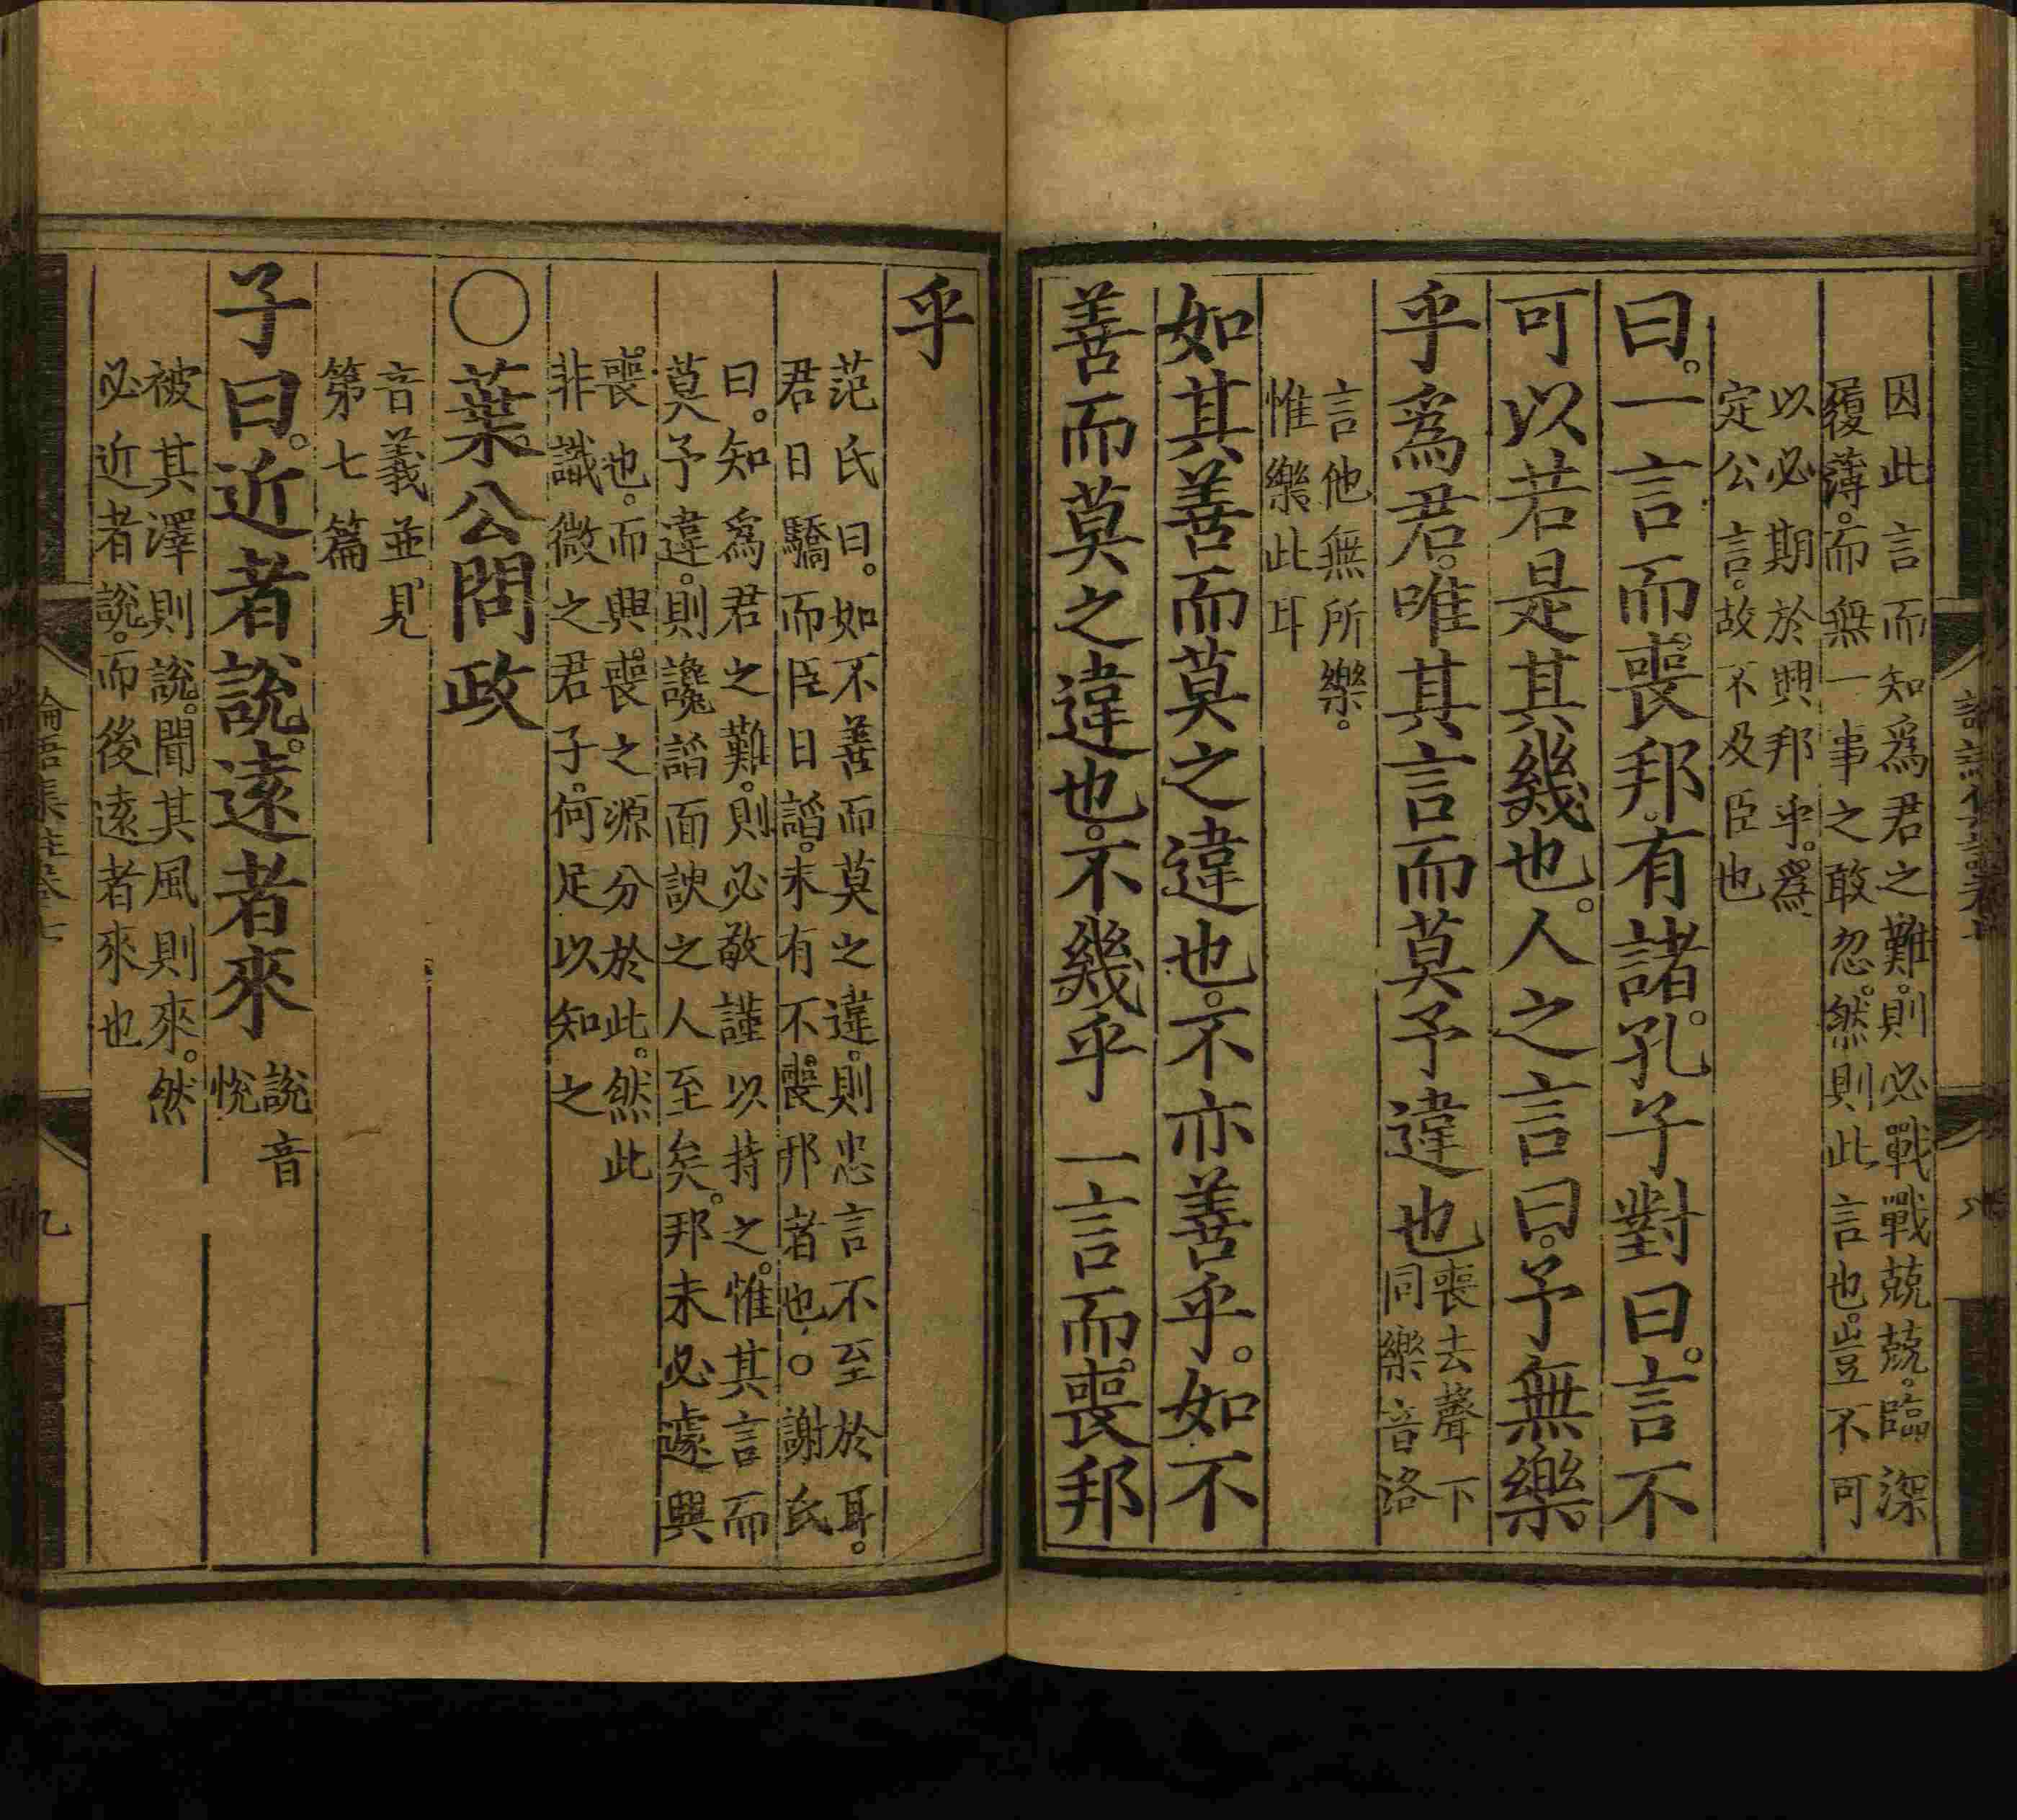 因此言而知爲君之難。則必戰戰兢兢。臨深
履薄。而無一事之敢忽。然則此言也。豈不可
以必期於興邦乎。爲
定公言。故不及臣也
曰。一言而喪邦。有諸。孔子對曰。言不
可以若是其幾也。人之言曰。予無樂
乎爲君。唯其言而莫予違也
喪去聲下
同樂音洛
言他無所樂。
惟樂此耳
如其善而莫之違也。不亦善乎。如不
善而莫之違也。不幾乎一言而喪邦
乎
范氏曰。如不善而莫之違。則忠言不至於耳。
君日驕而臣日諂。未有不喪邦者也。○謝氏
曰。知爲君之難。則必敬謹以持之。惟其言而
莫予違。則讒諂面諛之人至矣。邦未必遽興
喪也。而興喪之源分於此。然此
非識微之君子。何足以知之
○葉公問政
音義並見
第七篇
子曰。近者說。遠者來
說音
悅
被其澤則說。聞其風則來。然
必近者說。而後遠者來也
論語集註卷七
九